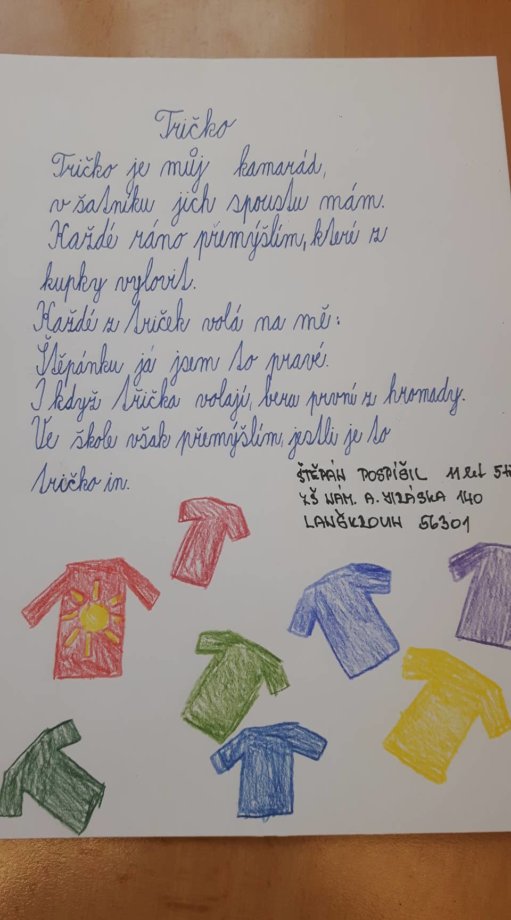 Tričko
Tričko je můj kamarád,
v šatníku jich spoustu mám.
Každé ráno přemýšlím, které z
kupky vylovit.
Každé z triček volá na mě:
Štěpánku já jsem to pravé.
I když trička volají, beru první z hromady.
Ve škole však přemýšlím, jestli je to
tričko in.
ŠTĚPÁN POSPÍŠIL 11 let
ZŠ NÁM. A. JIRÁSKA 140
LANŠKROUN 56301